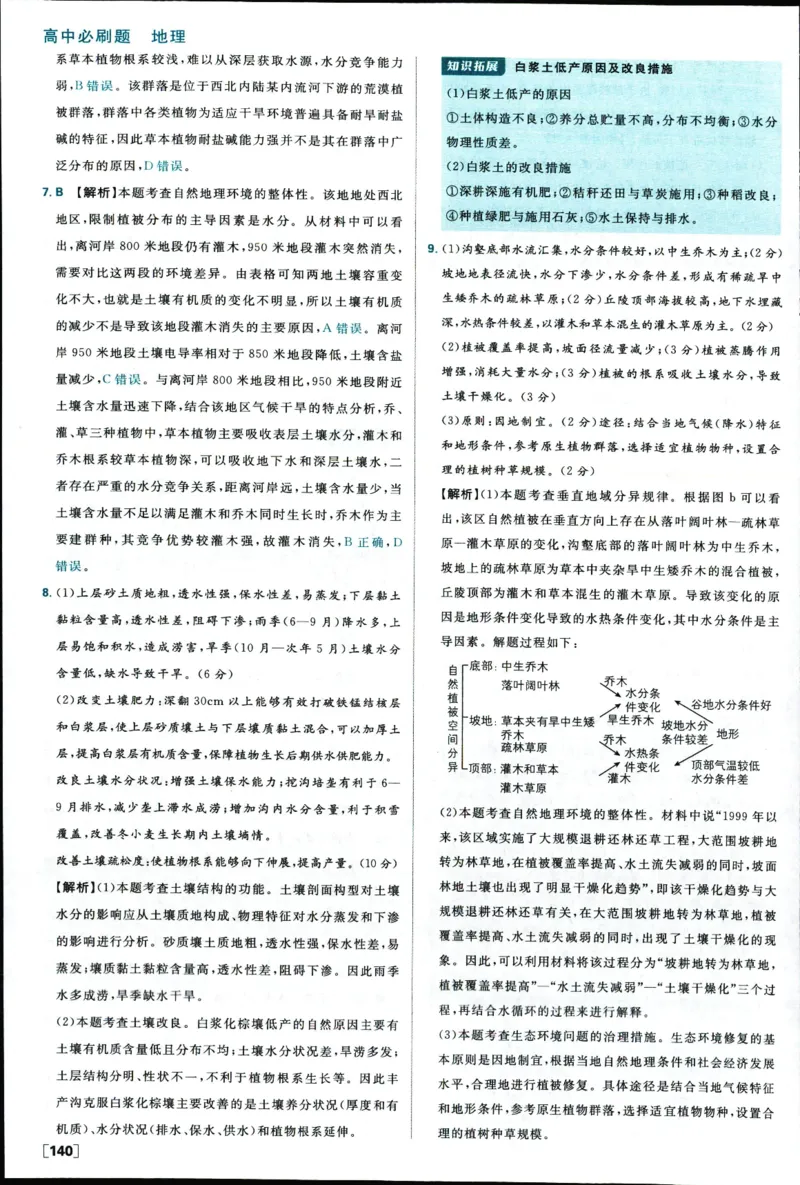 高中必刷题 地理
系草本植物根系较浅,难以从深层获取水源,水分竞争能力
弱,B错误。该群落是位于西北内陆某内流河下游的荒漠植
被群落,群落中各类植物为适应干旱环境普遍具备耐旱耐盐
碱的特征,因此草本植物耐盐碱能力强并不是其在群落中广
泛分布的原因,D错误。
7. B 【解析】本题考查自然地理环境的整体性。该地地处西北
地区,限制植被分布的主导因素是水分。从材料中可以看
出,离河岸 800 米地段仍有灌木,950 米地段灌木突然消失,
需要对比这两段的环境差异。由表格可知两地土壤容重变
化不大,也就是土壤有机质的变化不明显,所以土壤有机质
的减少不是导致该地段灌木消失的主要原因,A 错误。离河
岸 950 米地段土壤电导率相对于 850 米地段降低,土壤含盐
量减少,C错误。与离河岸 800 米地段相比,950 米地段附近
土壤含水量迅速下降,结合该地区气候干旱的特点分析,乔、
灌、草三种植物中,草本植物主要吸收表层土壤水分,灌木和
乔木根系较草本植物深,可以吸收地下水和深层土壤水,二
者存在严重的水分竞争关系,距离河岸远,土壤含水量少,当
土壤含水量不足以满足灌木和乔木同时生长时,乔木作为主
要建群种,其竞争优势较灌木强,故灌木消失,B 正确,D
错误。
8. (1)上层砂土质地粗,透水性强,保水性差,易蒸发;下层黏土
黏粒含量高,透水性差,阻碍下渗;雨季(6—9 月)降水多,上
层易饱和积水,造成涝害,旱季(10 月—次年 5 月)土壤水分
含量低,缺水导致干旱。(6 分)
(2)改变土壤肥力:深翻 30cm 以上能够有效打破铁锰结核层
和白浆层,使上层砂质壤土与下层壤质黏土混合,可以加厚土
层,提高白浆层有机质含量,保障植物生长后期供水供肥能力。
改良土壤水分状况:增强土壤保水能力;挖沟培垄有利于 6—
9 月排水,减少垄上滞水成涝;增加沟内水分含量,利于积雪
覆盖,改善冬小麦生长期内土壤墒情。
改善土壤疏松度:使植物根系能够向下伸展,提高产量。(10 分)
【解析】(1)本题考查土壤结构的功能。土壤剖面构型对土壤
水分的影响应从土壤质地构成、物理特征对水分蒸发和下渗
的影响进行分析。砂质壤土质地粗,透水性强,保水性差,易
蒸发;壤质黏土黏粒含量高,透水性差,阻碍下渗。因此雨季
水多成涝,旱季缺水干旱。
(2)本题考查土壤改良。白浆化棕壤低产的自然原因主要有
土壤有机质含量低且分布不均;土壤水分状况差,旱涝多发;
土层结构分明、性状不一,不利于植物根系生长等。因此丰
产沟克服白浆化棕壤主要改善的是土壤养分状况(厚度和有
机质)、水分状况(排水、保水、供水)和植物根系延伸。
知识拓展 白浆土低产原因及改良措施
(1)白浆土低产的原因
①土体构造不良;②养分总贮量不高,分布不均衡;③水分
物理性质差。
(2)白浆土的改良措施
①深耕深施有机肥;②秸秆还田与草炭施用;③种稻改良;
④种植绿肥与施用石灰;⑤水土保持与排水。
9. (1)沟壑底部水流汇集,水分条件较好,以中生乔木为主;(2 分)
坡地地表径流快,水分下渗少,水分条件差,形成有稀疏旱中
生矮乔木的疏林草原;(2 分)丘陵顶部海拔较高,地下水埋藏
深,水热条件较差,以灌木和草本混生的灌木草原为主。(2 分)
(2)植被覆盖率提高,坡面径流量减少;(3 分)植被蒸腾作用
增强,消耗大量水分;(3 分)植被的根系吸收土壤水分,导致
土壤干燥化。(3 分)
(3)原则:因地制宜。(2 分)途径:结合当地气候(降水)特征
和地形条件,参考原生植物群落,选择适宜植物物种,设置合
理的植树种草规模。(2 分)
【解析】(1)本题考查垂直地域分异规律。根据图 b 可以看
出,该区自然植被在垂直方向上存在从落叶阔叶林—疏林草
原—灌木草原的变化,沟壑底部的落叶阔叶林为中生乔木,
坡地上的疏林草原为草本中夹杂旱中生矮乔木的混合植被,
丘陵顶部为灌木和草本混生的灌木草原。导致该变化的原
因是地形条件变化导致的水热条件变化,其中水分条件是主
导因素。解题过程如下:
自然植被空间分异
底部:中生乔木
落叶阔叶林
坡地:草本夹有旱中生矮
乔木
疏林草原
顶部:灌木和草本
灌木草原
乔木
水分条
件变化
旱生乔木
乔木
水热条
件变化
灌木
谷地水分条件好
坡地水分
条件较差
地形
顶部气温较低
水分条件差
(2)本题考查自然地理环境的整体性。材料中说“1999 年以
来,该区域实施了大规模退耕还林还草工程,大范围坡耕地
转为林草地,在植被覆盖率提高、水土流失减弱的同时,坡面
林地土壤也出现了明显干燥化趋势”,即该干燥化趋势与大
规模退耕还林还草有关,在大范围坡耕地转为林草地,植被
覆盖率提高、水土流失减弱的同时,出现了土壤干燥化的现
象。因此,可以利用材料将该过程分为“坡耕地转为林草地,
植被覆盖率提高”—“水土流失减弱”—“土壤干燥化”三个过
程,再结合水循环的过程来进行解释。
(3)本题考查生态环境问题的治理措施。生态环境修复的基
本原则是因地制宜,根据当地自然地理条件和社会经济发展
水平,合理地进行植被修复。具体途径是结合当地气候特征
和地形条件,参考原生植物群落,选择适宜植物物种,设置合
理的植树种草规模。
[140]